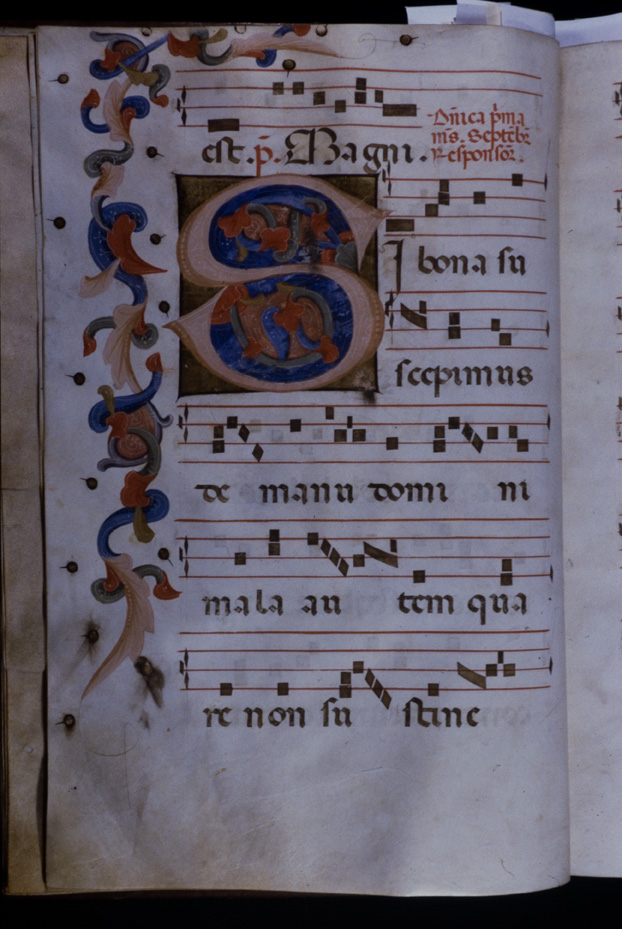 est. p̄. Magni.
Dn̄ica p̄ma
mēs. Septēbr̄
R̄esponsor̄.
SI bona su
scepimus
de manu domi ni
mala au tem qua
re non su stine